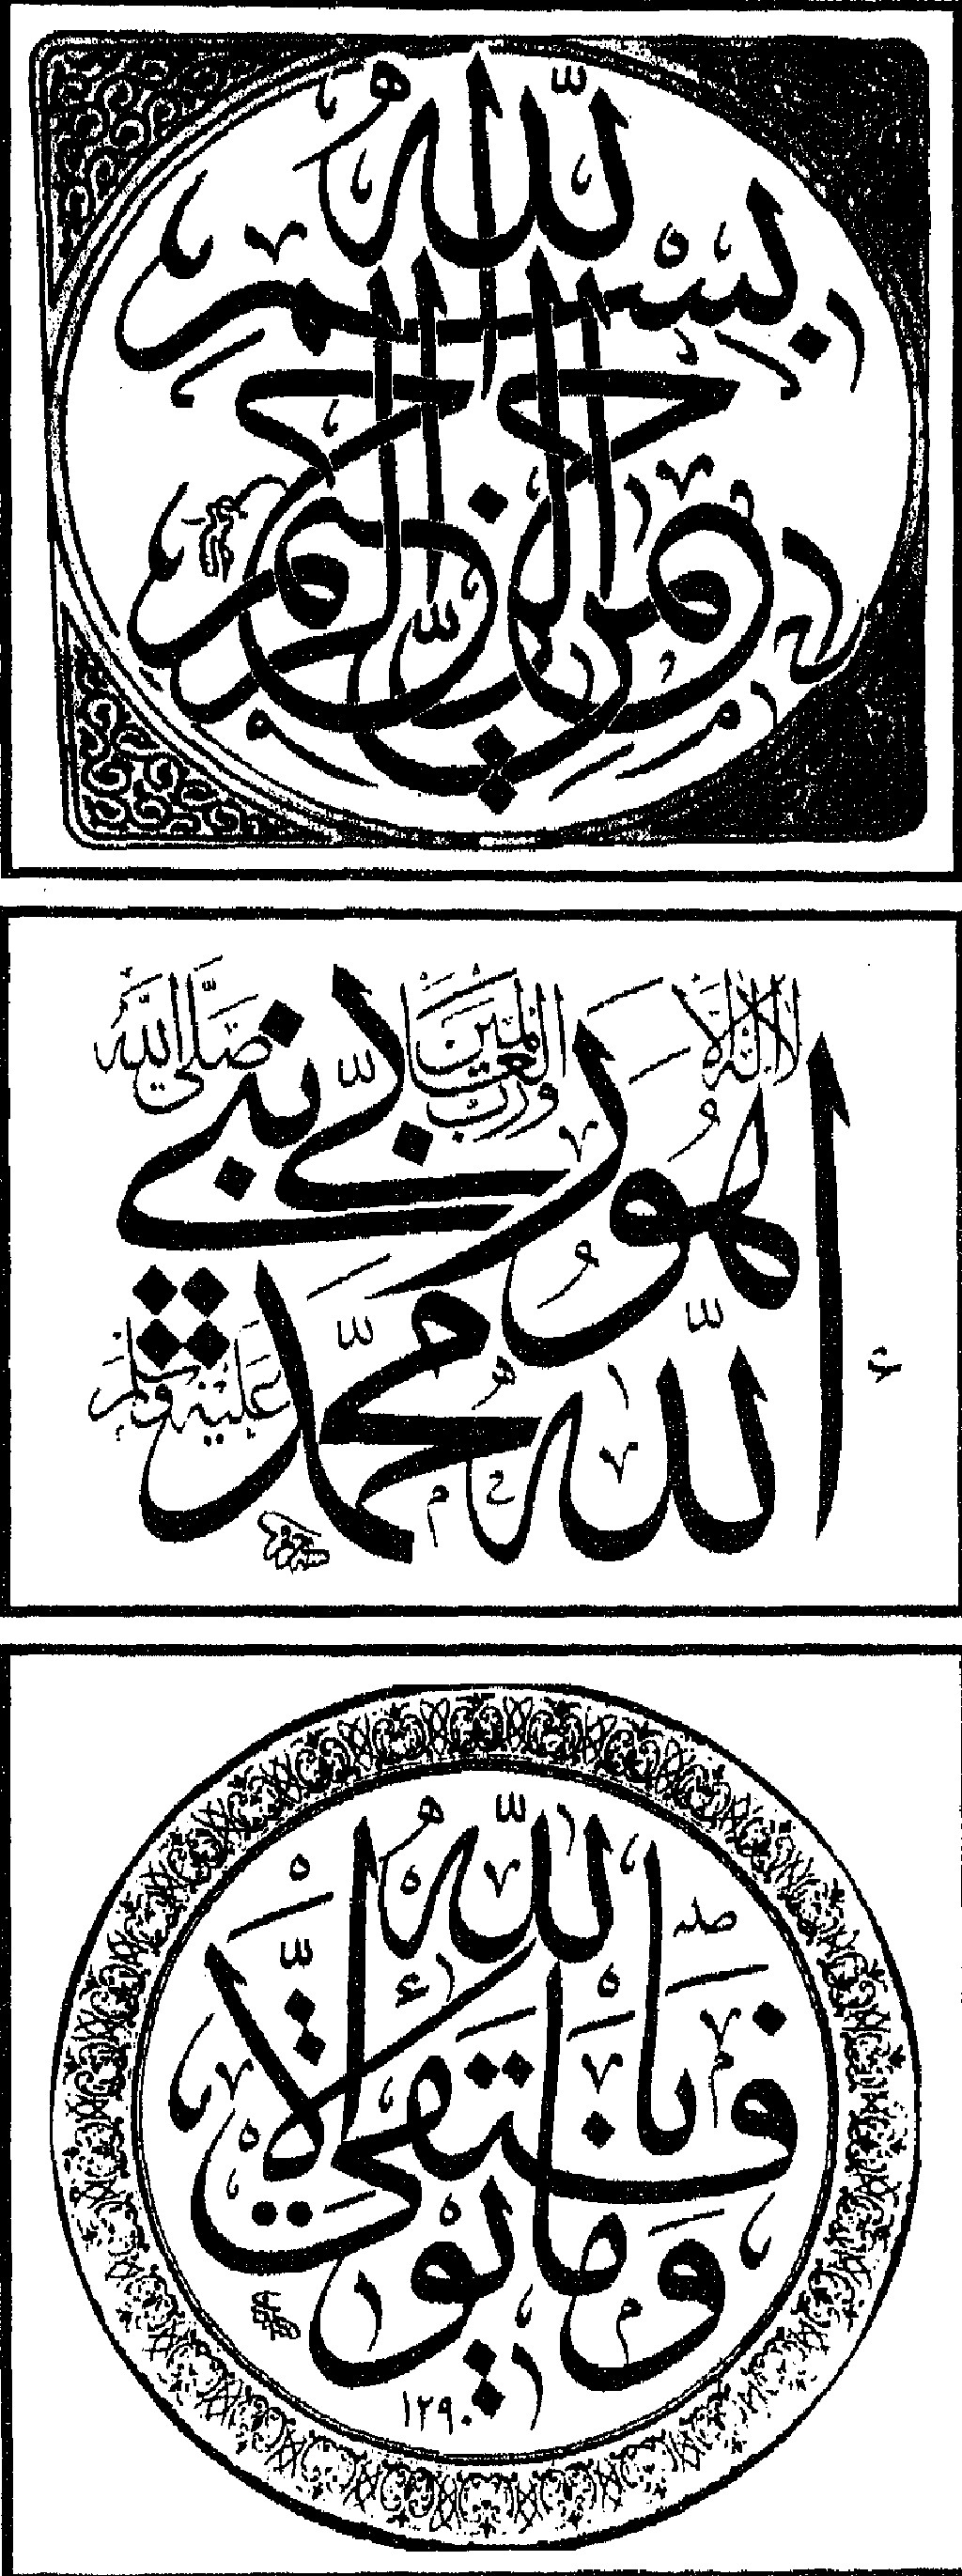 بسم الله الرحمن الرحيم
الله لا اله الا هو ربي ورب العالمين
محمد نبي صلى الله عليه وسلم
وما توفيقي الا بالله
١٢٩٠